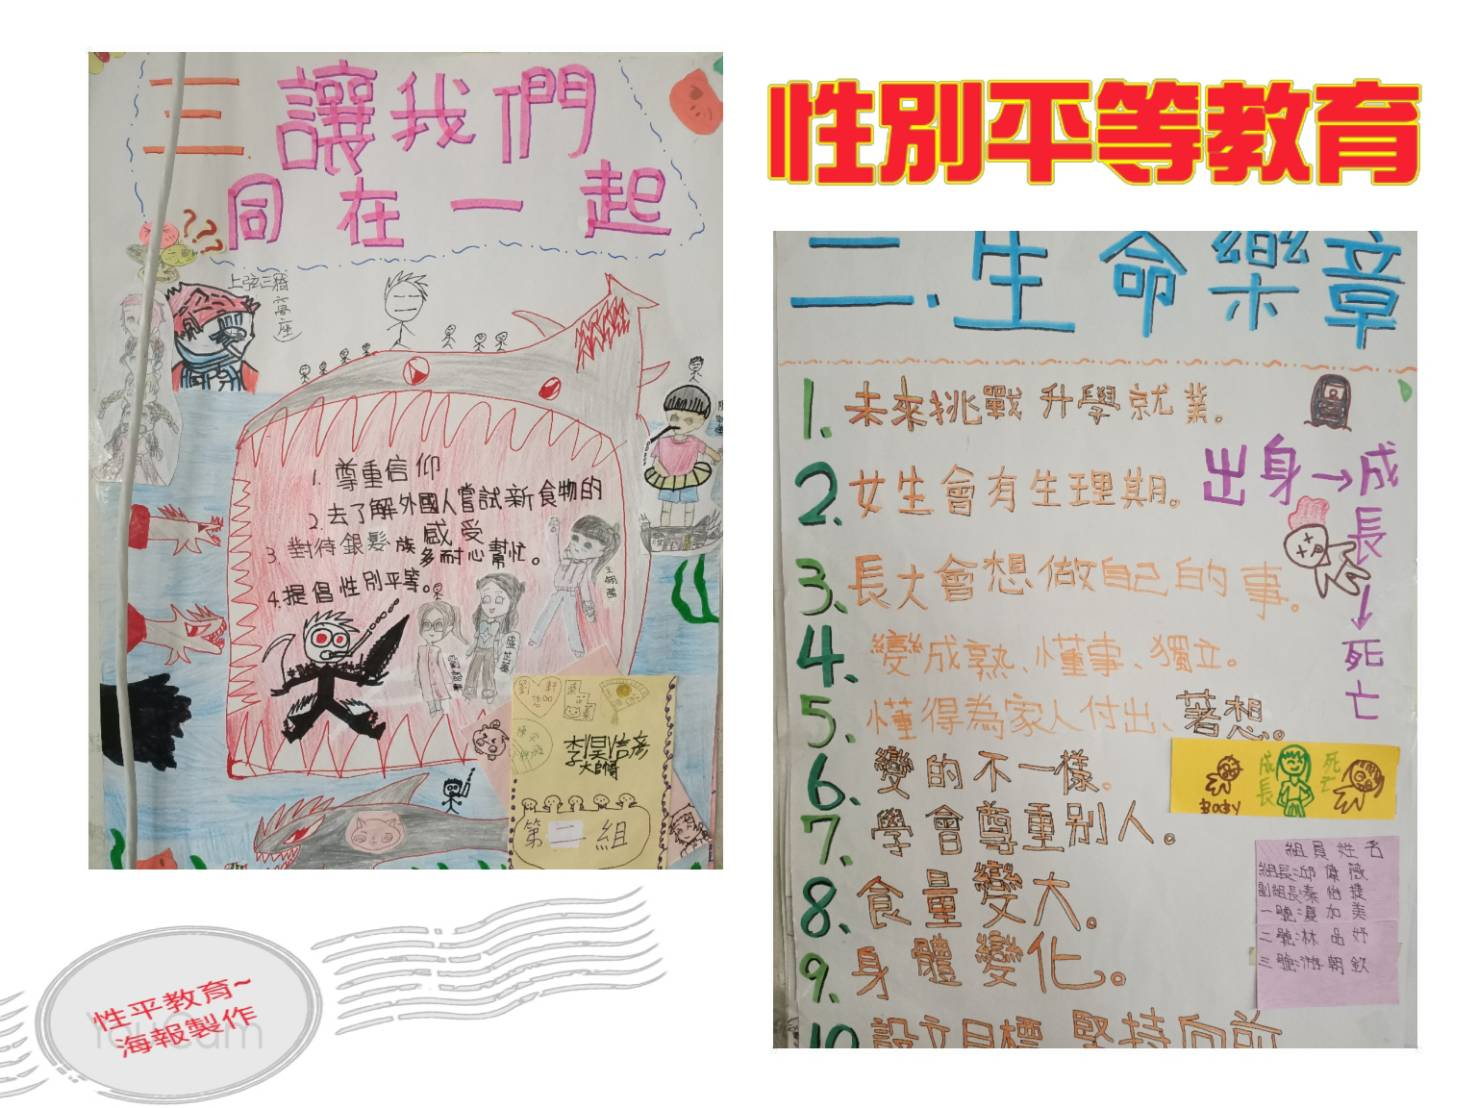 三. 讓我們
同在一起
???
上弦三猗
窩座)
1. 尊重信仰
2. 去了解外國人嘗試新食物的
感受
3. 對待銀髮族多耐心幫忙。
4. 提倡性別平等。
大師傅
第二組
性別平等教育
二.生命樂章
1. 未來挑戰升學就業。
2. 女生會有生理期。
3、長大會想做自己的事。
4、變成熟、懂事、獨立。
5、懂得為家人付出、著想。
6、變的不一樣。
7、學會尊重別人。
8、食量變大。
9、身體變化。
10 設立目標 堅持向前
出身→成
長
↓
死
亡
Baby
成長
死亡
組員姓名
組長:邱
副組長:秦怡捷
一號:夏加美
二號:林品妤
三號:游朝欽
性平教育~
海報製作
YouCam